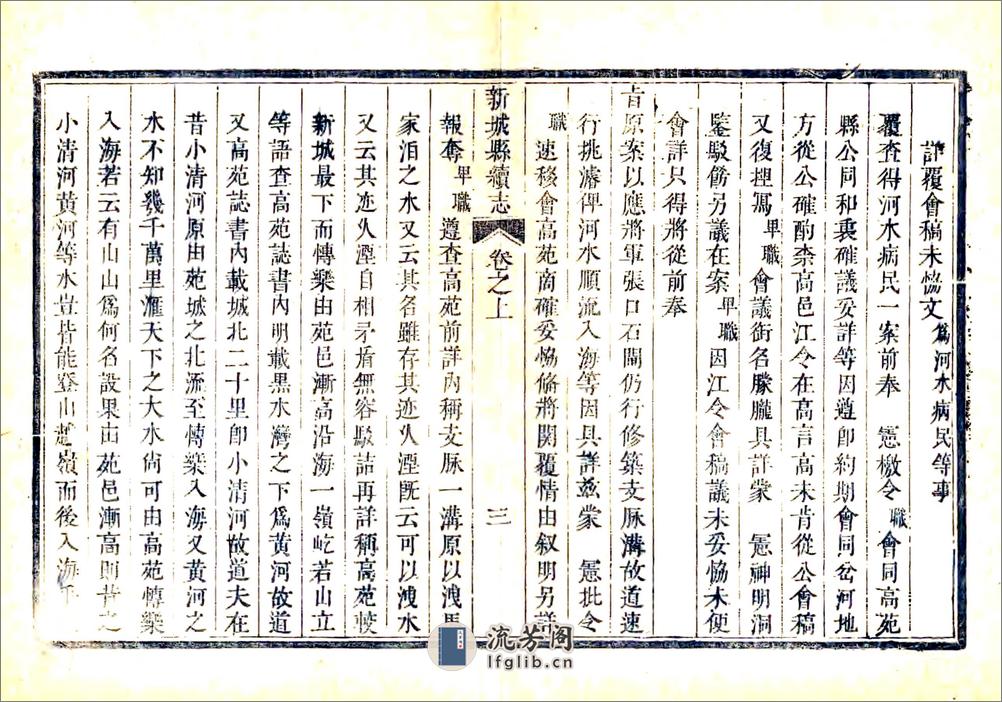 詳覆會稿未協文爲河水病民等事
覆查得河水病民一案前奉　憲檄令職會同高苑
縣公同和衷確議妥詳等因遵即約期會同岔河地
方從公確酌柰高邑江令在高言高未肯從公會稿
又復捏寫卑職會議銜名朦朧具詳蒙　憲神明洞
鑒駁飭另議在案卑職因江令會稿議未妥協未便
會詳只得將從前奉
旨原案以應將軍張口石閘仍行修築支脉溝故道速
行挑濬俾河水順流入海等因具詳兹蒙　憲批令
職速移會高苑啇確妥協俻將関覆情由叙明另詳
新城縣續志　卷之上　三
報奪卑職遵查高苑前詳內稱支脉一溝原以洩馬
家泊之水又云其名雖存其迹久湮旣云可以洩水
又云其迹久湮自相矛盾無容駁詰再詳稱高苑較
新城最下而博樂由苑邑漸高沿海一嶺屹若山立
等語查高苑誌書內明載黒水灣之下爲黃河故道
又高苑誌書內載城北二十里卽小清河故道夫在
昔小清河原由苑城之北流至博樂入海又黃河之
水不知幾千萬里滙天下之大水尙可由高苑博樂
入海若云有山山爲何名設果由苑邑漸高則昔之
小清河黃河等水豈皆能登山越嶺而後入海乎
流芳阁
lfglib.cn